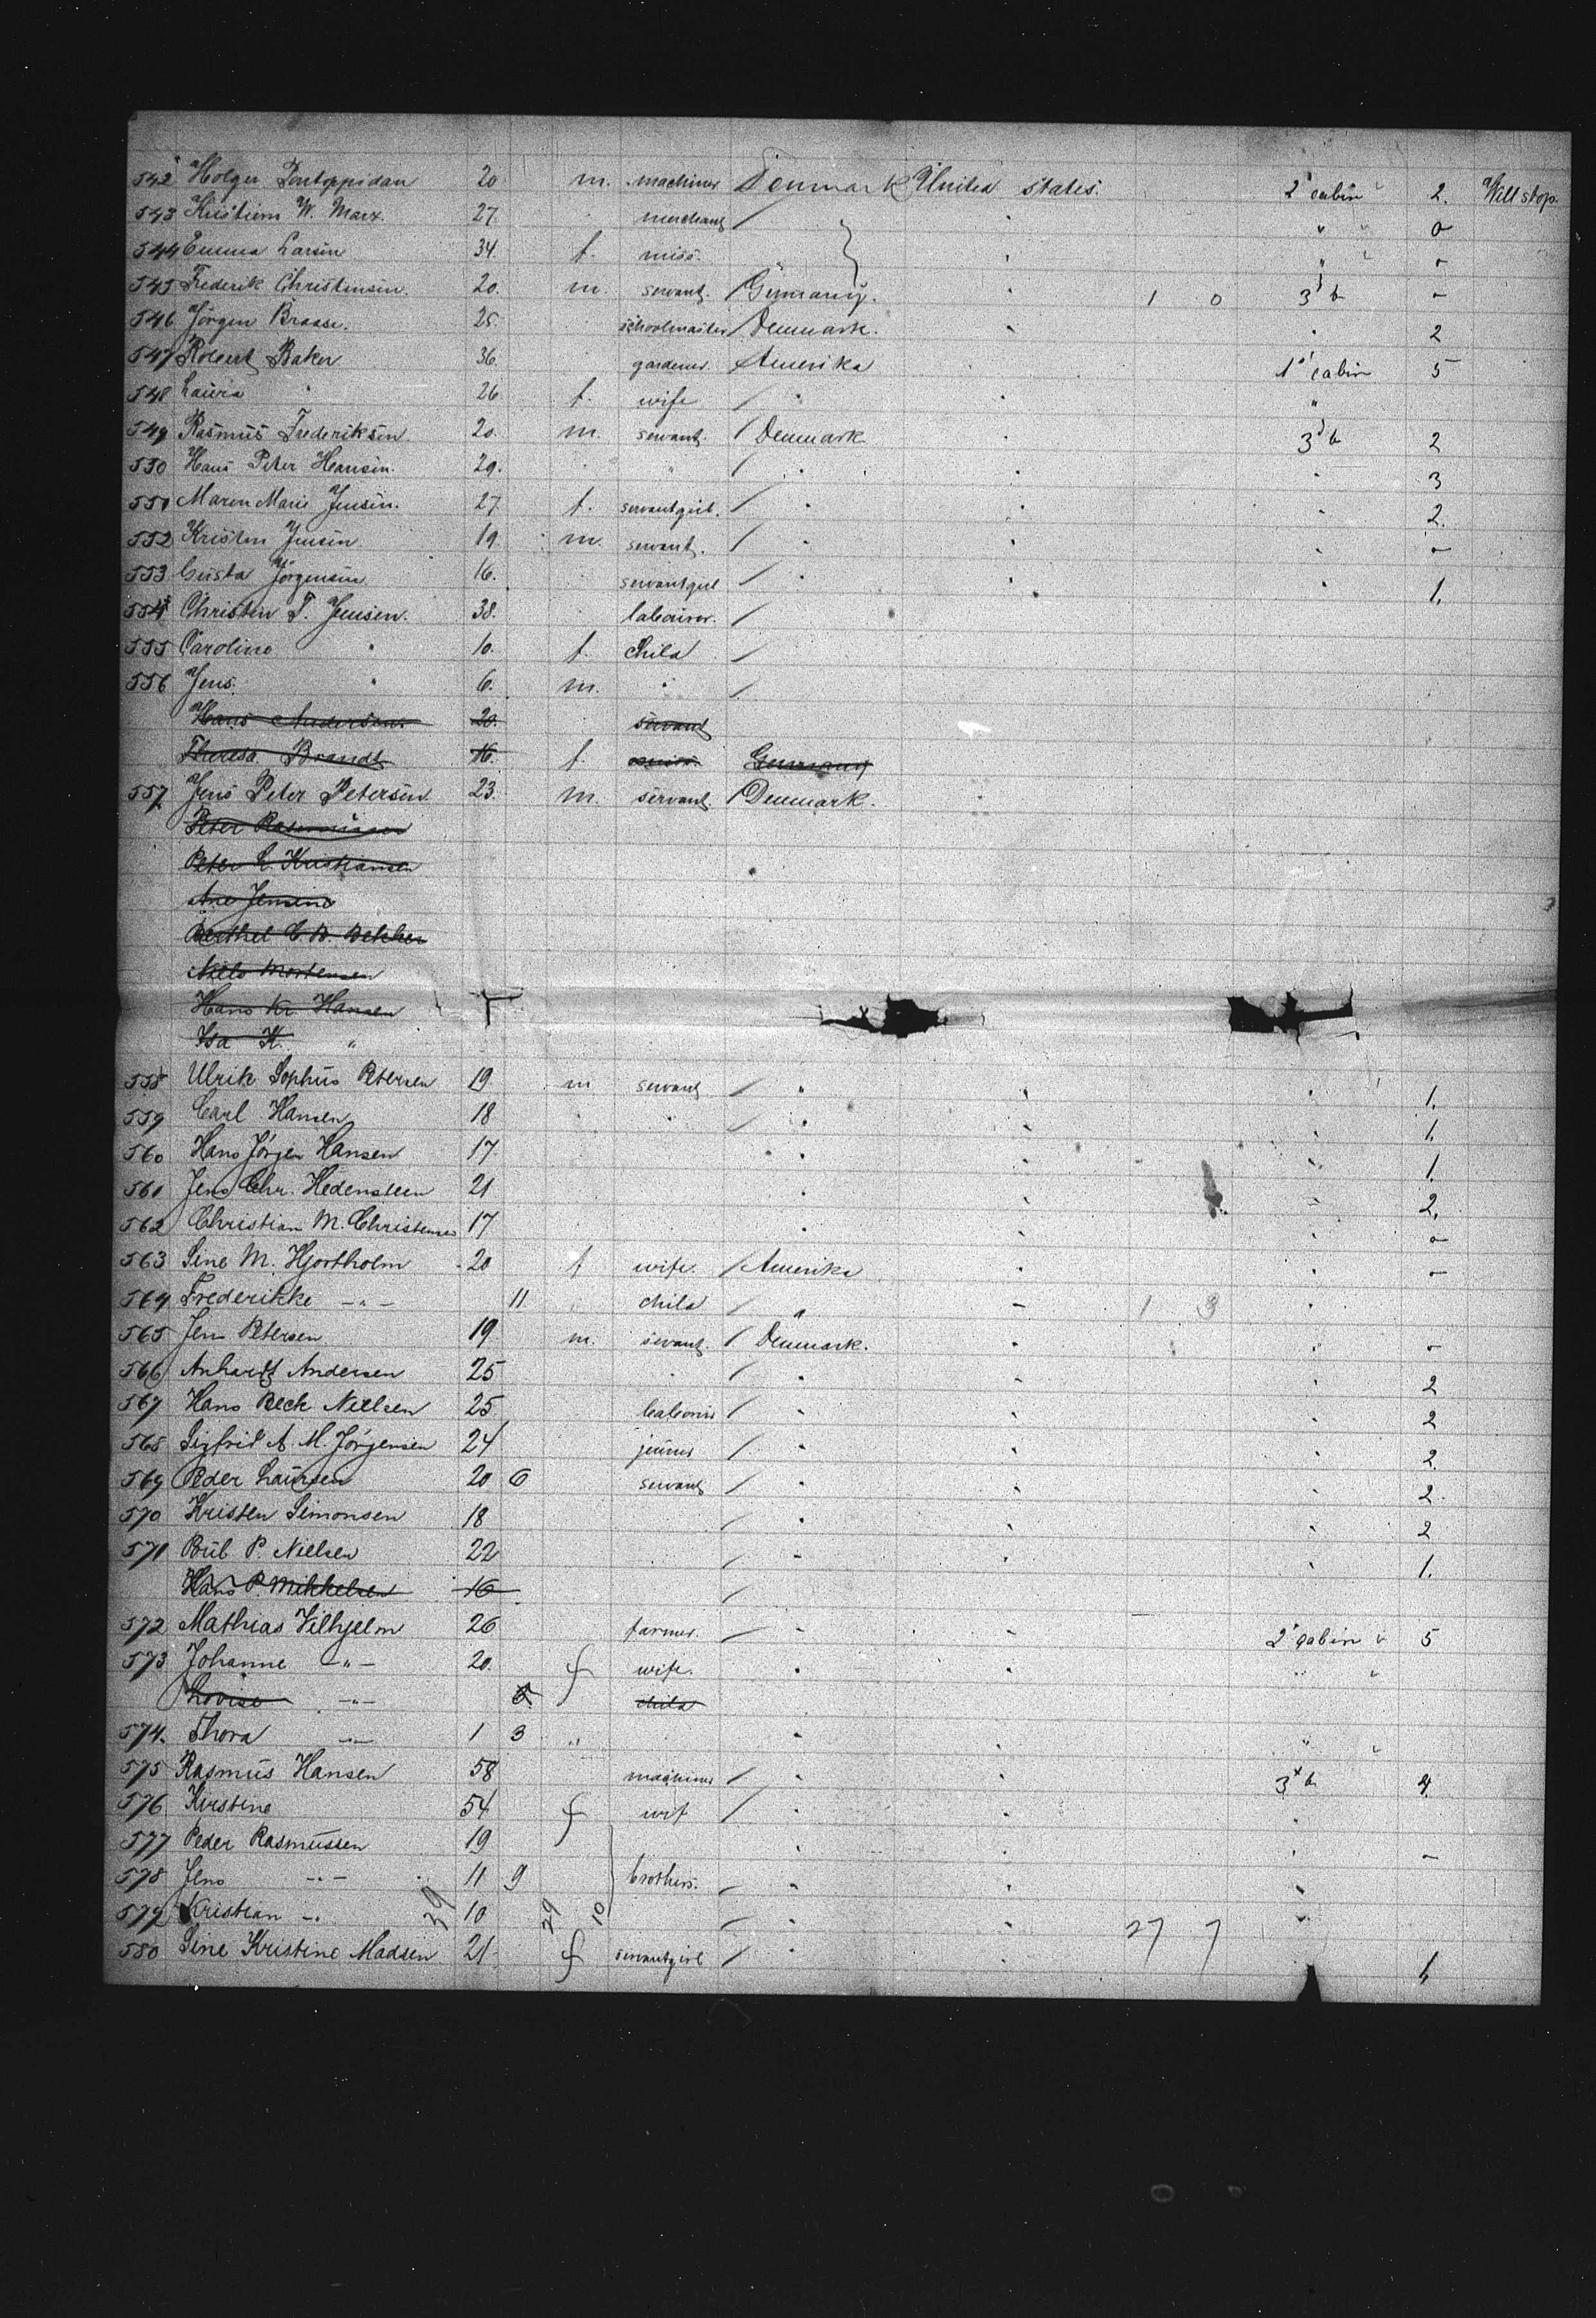 542 Holger Pontoppidan 20 m. machiner Denmark United States. 2' cabin 2. Will stop.
543 Kristian W. Marx. 27. merchant / " " o
544 Emma Larsen 34. f. miss. "
545 Frederik Christensen. 20. m. servant. / Germany. 1 0 3d
546 Jörgen Brasse. 25. schoolmaster / Denmark. 2
547 Robert Baker 36. gardener. Amerika 1' cabin 5
548 Laura " 26 f. wife / " "
549 Rasmus Frederiksen. 20. m. servant. / Denmark. 3d 2
550 Hans Peter Hansen. 29. " / " 3
551 Maren Marie Jensen. 27. f. servantgirl. / " 2.
552 Kristen Jensen. 19. m. servant. / "
553 Gusta Jörgensen 16. servantgirl / " 1.
554 Christen T. Jensen. 38. labourer. /
555 Caroline " 10. f. child /
556 Jens. " 6. m. " /
Hans Andersen 20. servant
Theresa Brandt 16. f. miss. Germany
557 Jens Peter Petersen 23. m. servant / Denmark.
Peter Rasmussen
Peter L. Kristiansen
Ane Jensine
Berthel C. B. Bekker
Niels Mortensen
Hans Kr. Hansen
Isa K. "
558 Ulrik Sophus Petersen 19 m servant / " 1.
559 Carl Hansen 18 " / " 1.
560 Hans Jörgen Hansen 17. " 1.
561 Jens Chr. Hedensteen 21 " 2.
562 Christian M. Christensen 17 "
563 Sine M. Hjortholm 20 f wife. / Amerika
564 Frederikke -"- 11 child / " 1 3
565 Jens Petersen 19 m. servant. / Denmark.
566 Anhardt Andersen 25 / " 2
567 Hans Beck Nielsen 25. / " 2
568 Sigfrid A. M. Jörgensen 24 / " 2.
569 Peder Laursen 20 6 servant / " 2.
570 Kristen Simonsen 18 / " 2
571 P. Nielsen 22 / " 1.
Hans P. Mikkelsen 16 /
572 Mathias Vilhjelm 26 farmer. / " 2' cabin 5
573 Johanne -"- 20. f wife. " "
Lovise -"- child
574. Thora -"- 1 3 " " "
575 Rasmus Hansen 58 machiner / " 3d 4.
576 Kirstine 54 f wif / "
577 Peder Rasmussen 19 "
578 Jens -"- 11 9 brothers. / "
579 Kristian -"- 39 10 29 10 / " 27 7
580 Sine Kristine Madsen 21. f servantgirl / " 1,